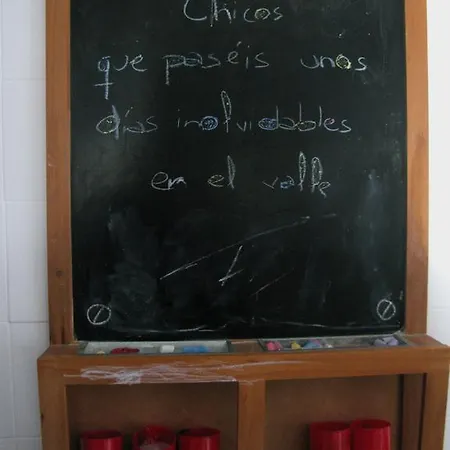 Chicos
que paséis unos
días inolvidables
en el valle